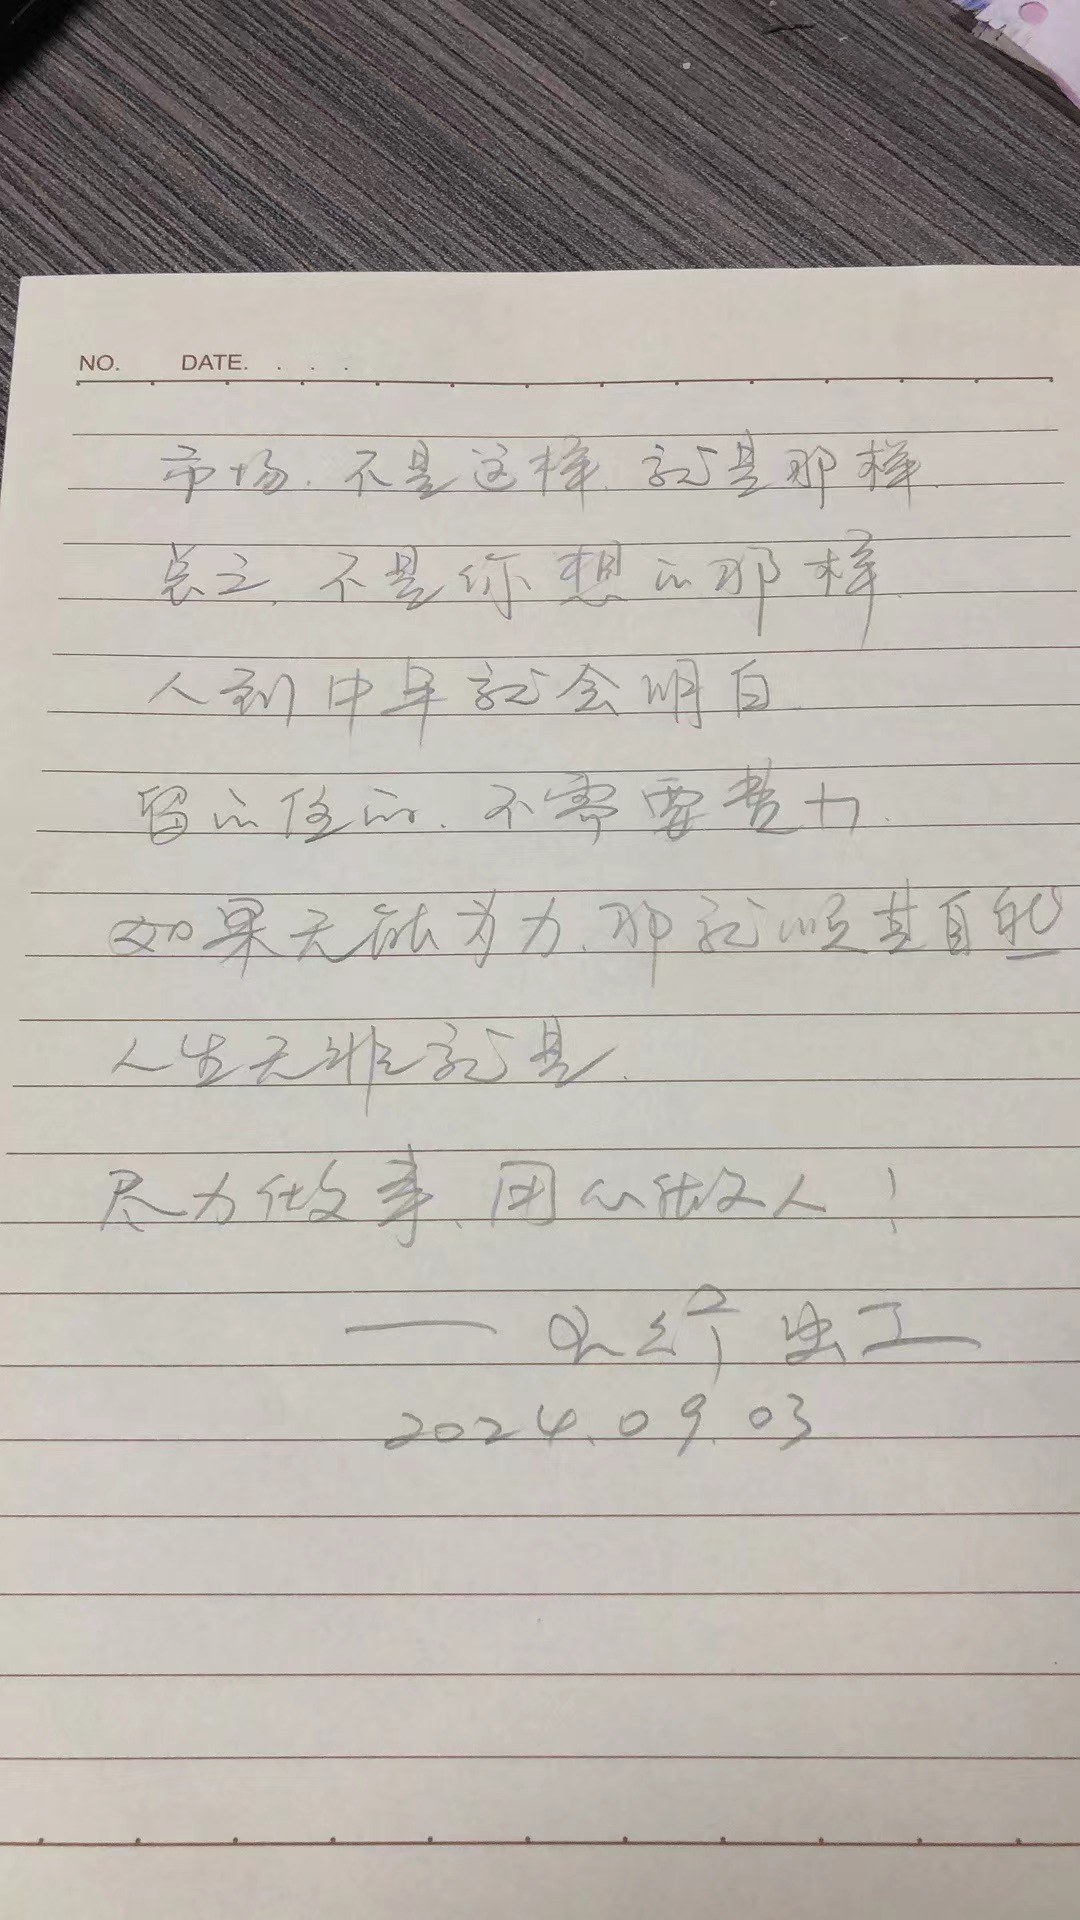 NO. DATE. . . .
市场.不是这样.就是那样.
总之.不是你想的那样.
人到中年就会明白.
留的住的.不需要费力.
如果无能为力.那就顺其自然
人生无非就是.
尽力做事、用心做人!
2024.09.03